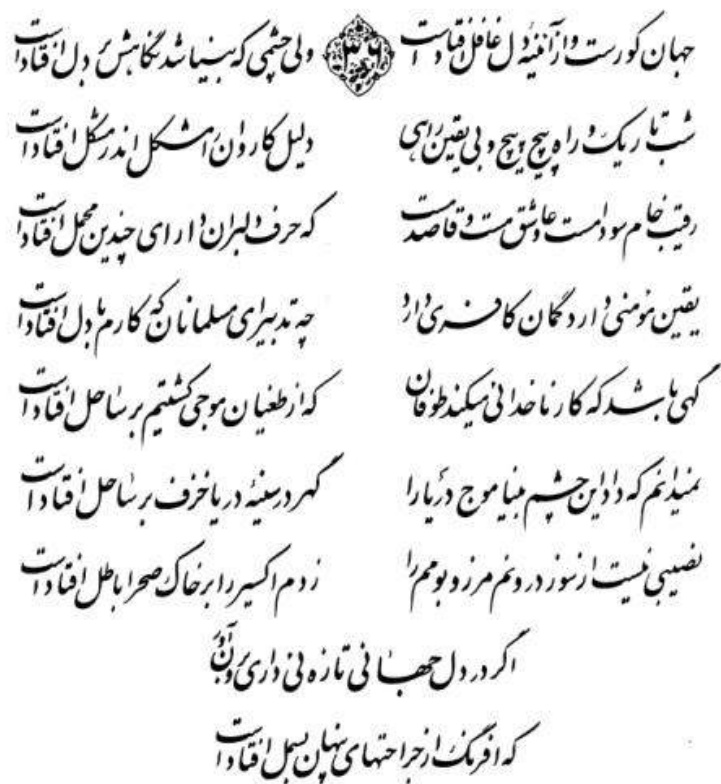 جهان کورست و از آئینهٔ دل غافل افتاد است ۳۶ ولی چشمی که بینا شد نگاهش بر دل افتاد است
شب تاریک و راه پیچ پیچ و بی یقین راهی دلیل کاروان را مشکل اندر مشکل افتاد است
رقیب خام سودا مست و عاشق مست و قاصد مست که حرف دلبران دارای چندین محمل افتاد است
یقین مؤمنی دارد گمان کافری دارد چه تدبیر ای مسلمانان که کارم با دل افتاد است
گهی باشد که کار ناخدائی میکند طوفان که از طغیان موجی کشتیم بر ساحل افتاد است
نمیدانم که داد این چشم بینا موج دریا را گهر در سینهٔ دریا خزف بر ساحل افتاد است
نصیبی نیست از سوز درونم مرز و بومم را زدم اکسیر را بر خاک صحرا باطل افتاد است
اگر در دل جهانی تازه ئی داری برون آور
که افرنگ از جراحتهای پنهان بسمل افتاد است